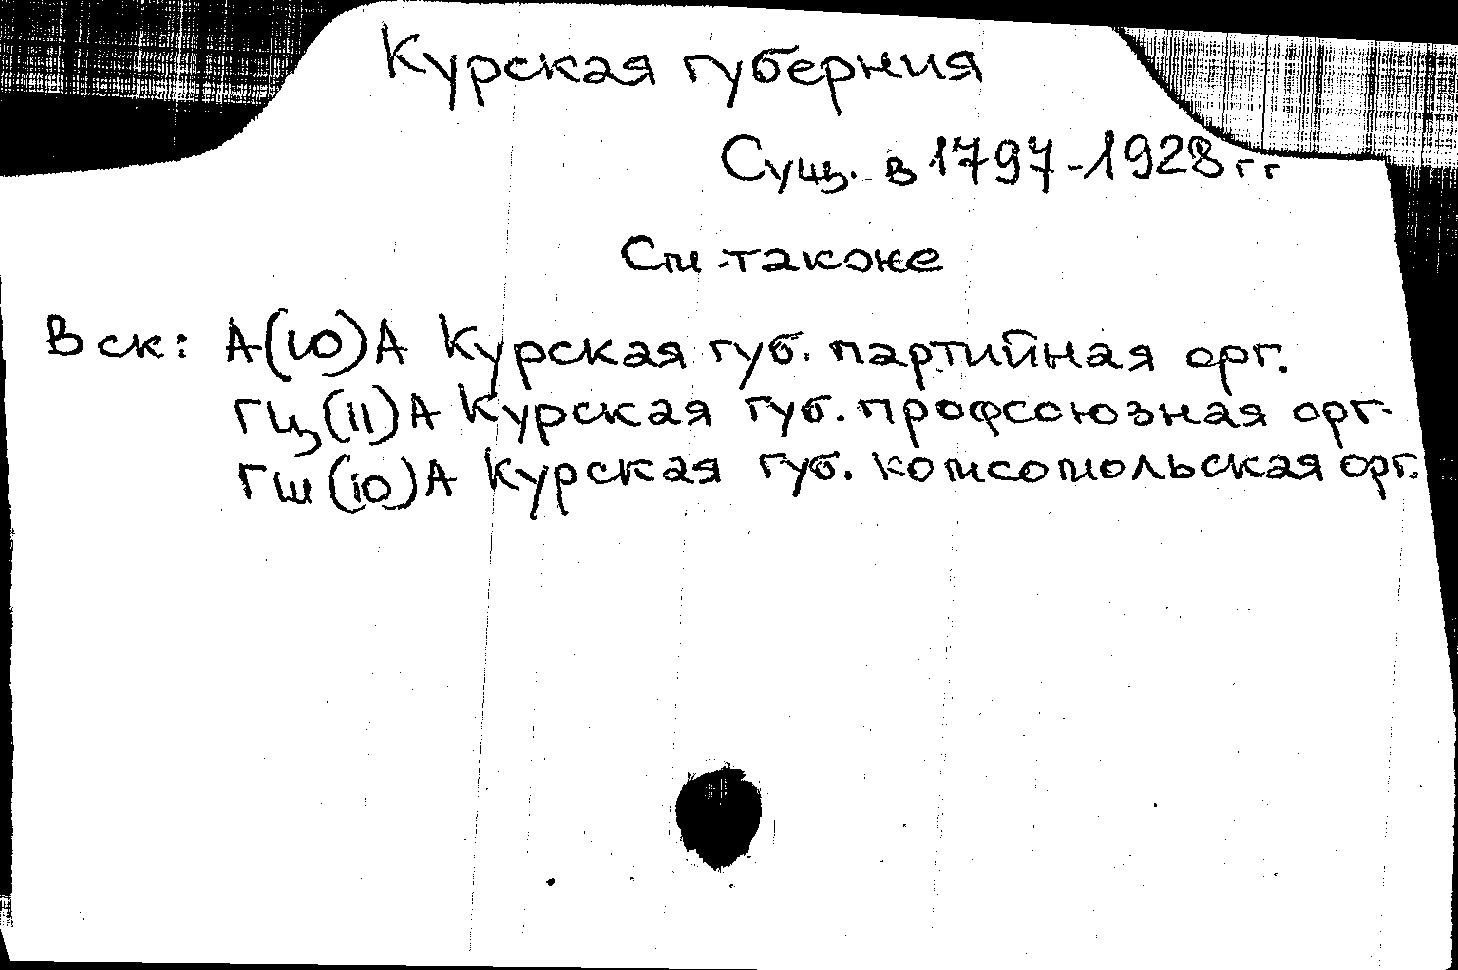 Курская губерния
Сущ. в 1797-1928 гг
См также
В ск: А(10)А Курская губ. партийная орг.
ГЦ(11)А Курская губ. профсоюзная орг.
ГШ(10)А Курская губ. комсомольская орг.